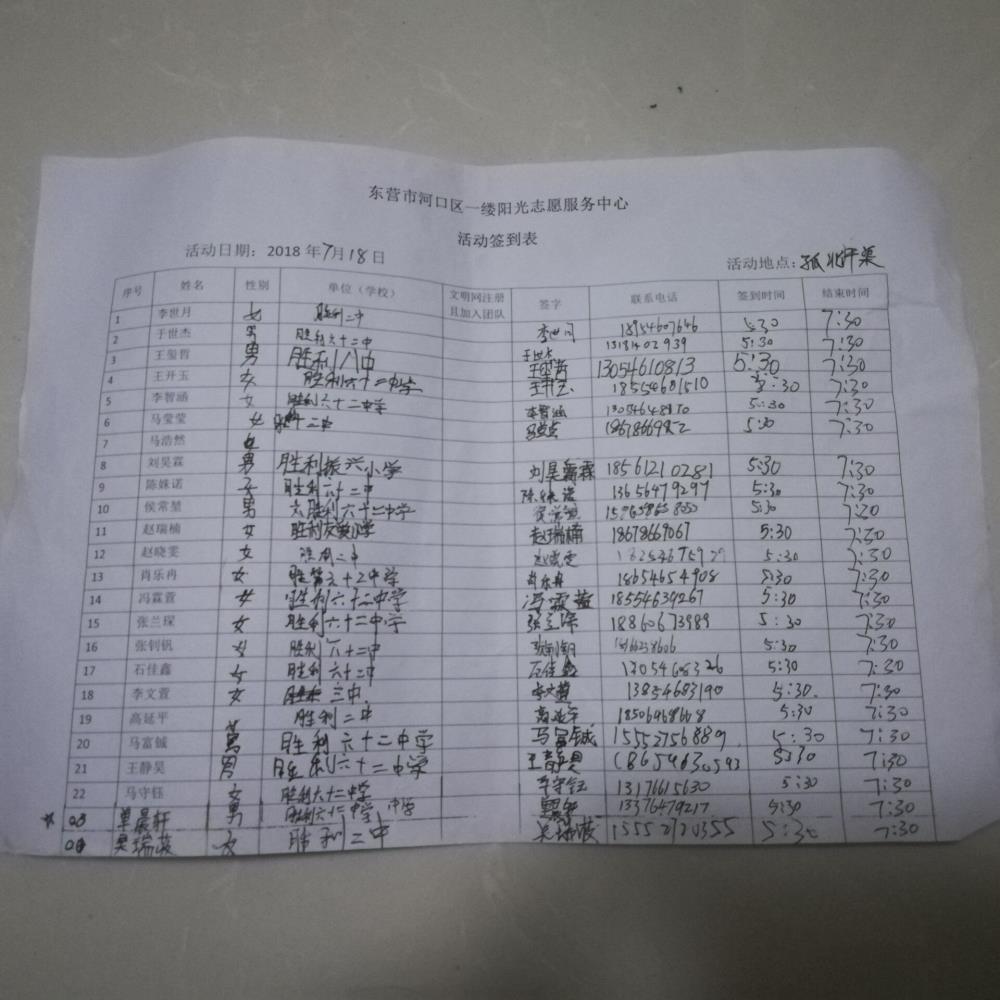 东营市河口区一缕阳光志愿服务中心
活动签到表
活动日期：2018 年7月18日 活动地点：孤北干渠
序号 姓名 性别 单位（学校） 文明网注册且加入团队 签字 联系电话 签到时间 结束时间
1 李世月 女 胜利二中 18954607646 5:30 7:30
2 于世杰 男 胜利六十二中 于世杰 13181402939 5:30 7:30
3 王玺哲 男 胜利八中 王玺哲 13054610813 5:30 7:30
4 王开玉 女 胜利六十二中学 王开玉 18554601510 5:30 7:30
5 李智涵 女 胜利六十二中学 李智涵 5:30 7:30
6 马莹莹 女 二中 马莹莹 5:30 7:30
7 马浩然
8 刘昊霖 男 胜利振兴小学 刘昊霖 18561210281 5:30 7:30
9 陈姝诺 女 胜利六十二中 陈姝诺 13656479297 5:30 7:30
10 侯常堃 男 胜利六十二中学 5:30 7:30
11 赵瑞楠 女 赵瑞楠 18678669067 5:30 7:30
12 赵晓雯 女 胜利二中 5:30 7:30
13 肖乐冉 女 肖乐冉 18654654908 5:30 7:30
14 冯霖萱 女 胜利六十二中学 冯霖萱 18554639267 5:30 7:30
15 张兰琛 女 胜利六十二中学 18860673989 5:30 7:30
16 张钊钒 胜利六十二中 5:30 7:30
17 石佳鑫 女 胜利六十二中 石佳鑫 13054608326 5:30 7:30
18 李文萱 女 三中 李文萱 13854683190 5:30. 7:30
19 高延平 胜利二中 高延平 5:30 7:30
20 马富铖 男 胜利六十二中学 马富铖 15552756889. 5:30 7:30
21 王静昊 男 胜利六十二中学 王静昊 18659630593 5:30 7:30
22 马守钰 女 胜利六十二中学 13176615630 5:30 7:30
单晨轩 男 胜利六十二中学 中学 13376479217 5:30 7:30
吴瑞 女 胜利二中 5:30 7:30